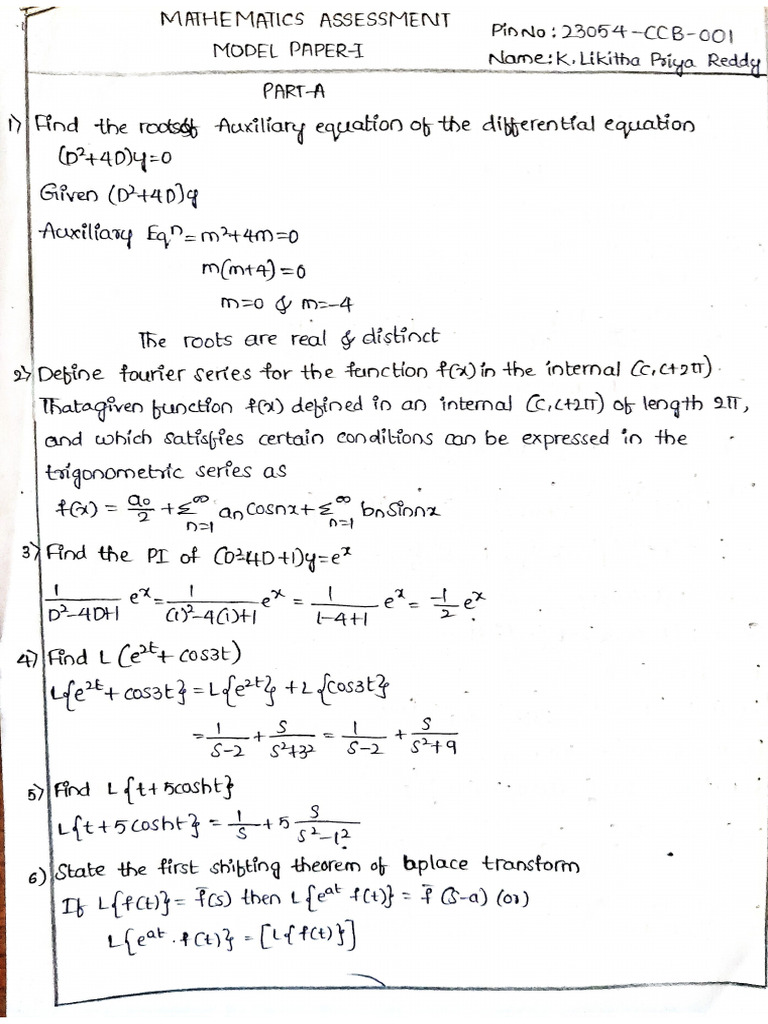 MATHEMATICS ASSESSMENT
MODEL PAPER-I
Pin No : 23054-CCB-001
Name: K. Likitha Priya Reddy
PART-A
1) Find the roots of Auxiliary equation of the differential equation
(D²+4D)y=0
Given (D²+4D)y
Auxiliary Eqⁿ = m²+4m=0
m(m+4)=0
m=0 & m=-4
The roots are real & distinct
2) Define fourier series for the function f(x) in the internal (C, C+2π).
That a given function f(x) defined in an internal (C, C+2π) of length 2π,
and which satisfies certain conditions can be expressed in the
trigonometric series as
f(x) = a₀/2 + Σ^∞_{n=1} aₙ cosnx + Σ^∞_{n=1} bₙ sinnx
3) Find the PI of (D²-4D+1)y=eˣ
1/(D²-4D+1) eˣ = 1/((1)²-4(1)+1) eˣ = 1/(1-4+1) eˣ = -1/2 eˣ.
4) Find L (e²ᵗ + cos3t)
L{e²ᵗ + cos3t} = L{e²ᵗ} + L{cos3t}
= 1/(S-2) + S/(S²+3²) = 1/(S-2) + S/(S²+9)
5) Find L{t + 5cosht}
L{t + 5cosht} = 1/S + 5 S/(S²-1²)
6) State the first shifting theorem of laplace transform
If L{f(t)} = f̄(s) then L{eᵃᵗ f(t)} = f̄ (S-a) (or)
L{eᵃᵗ . f(t)} = [L{f(t)}]